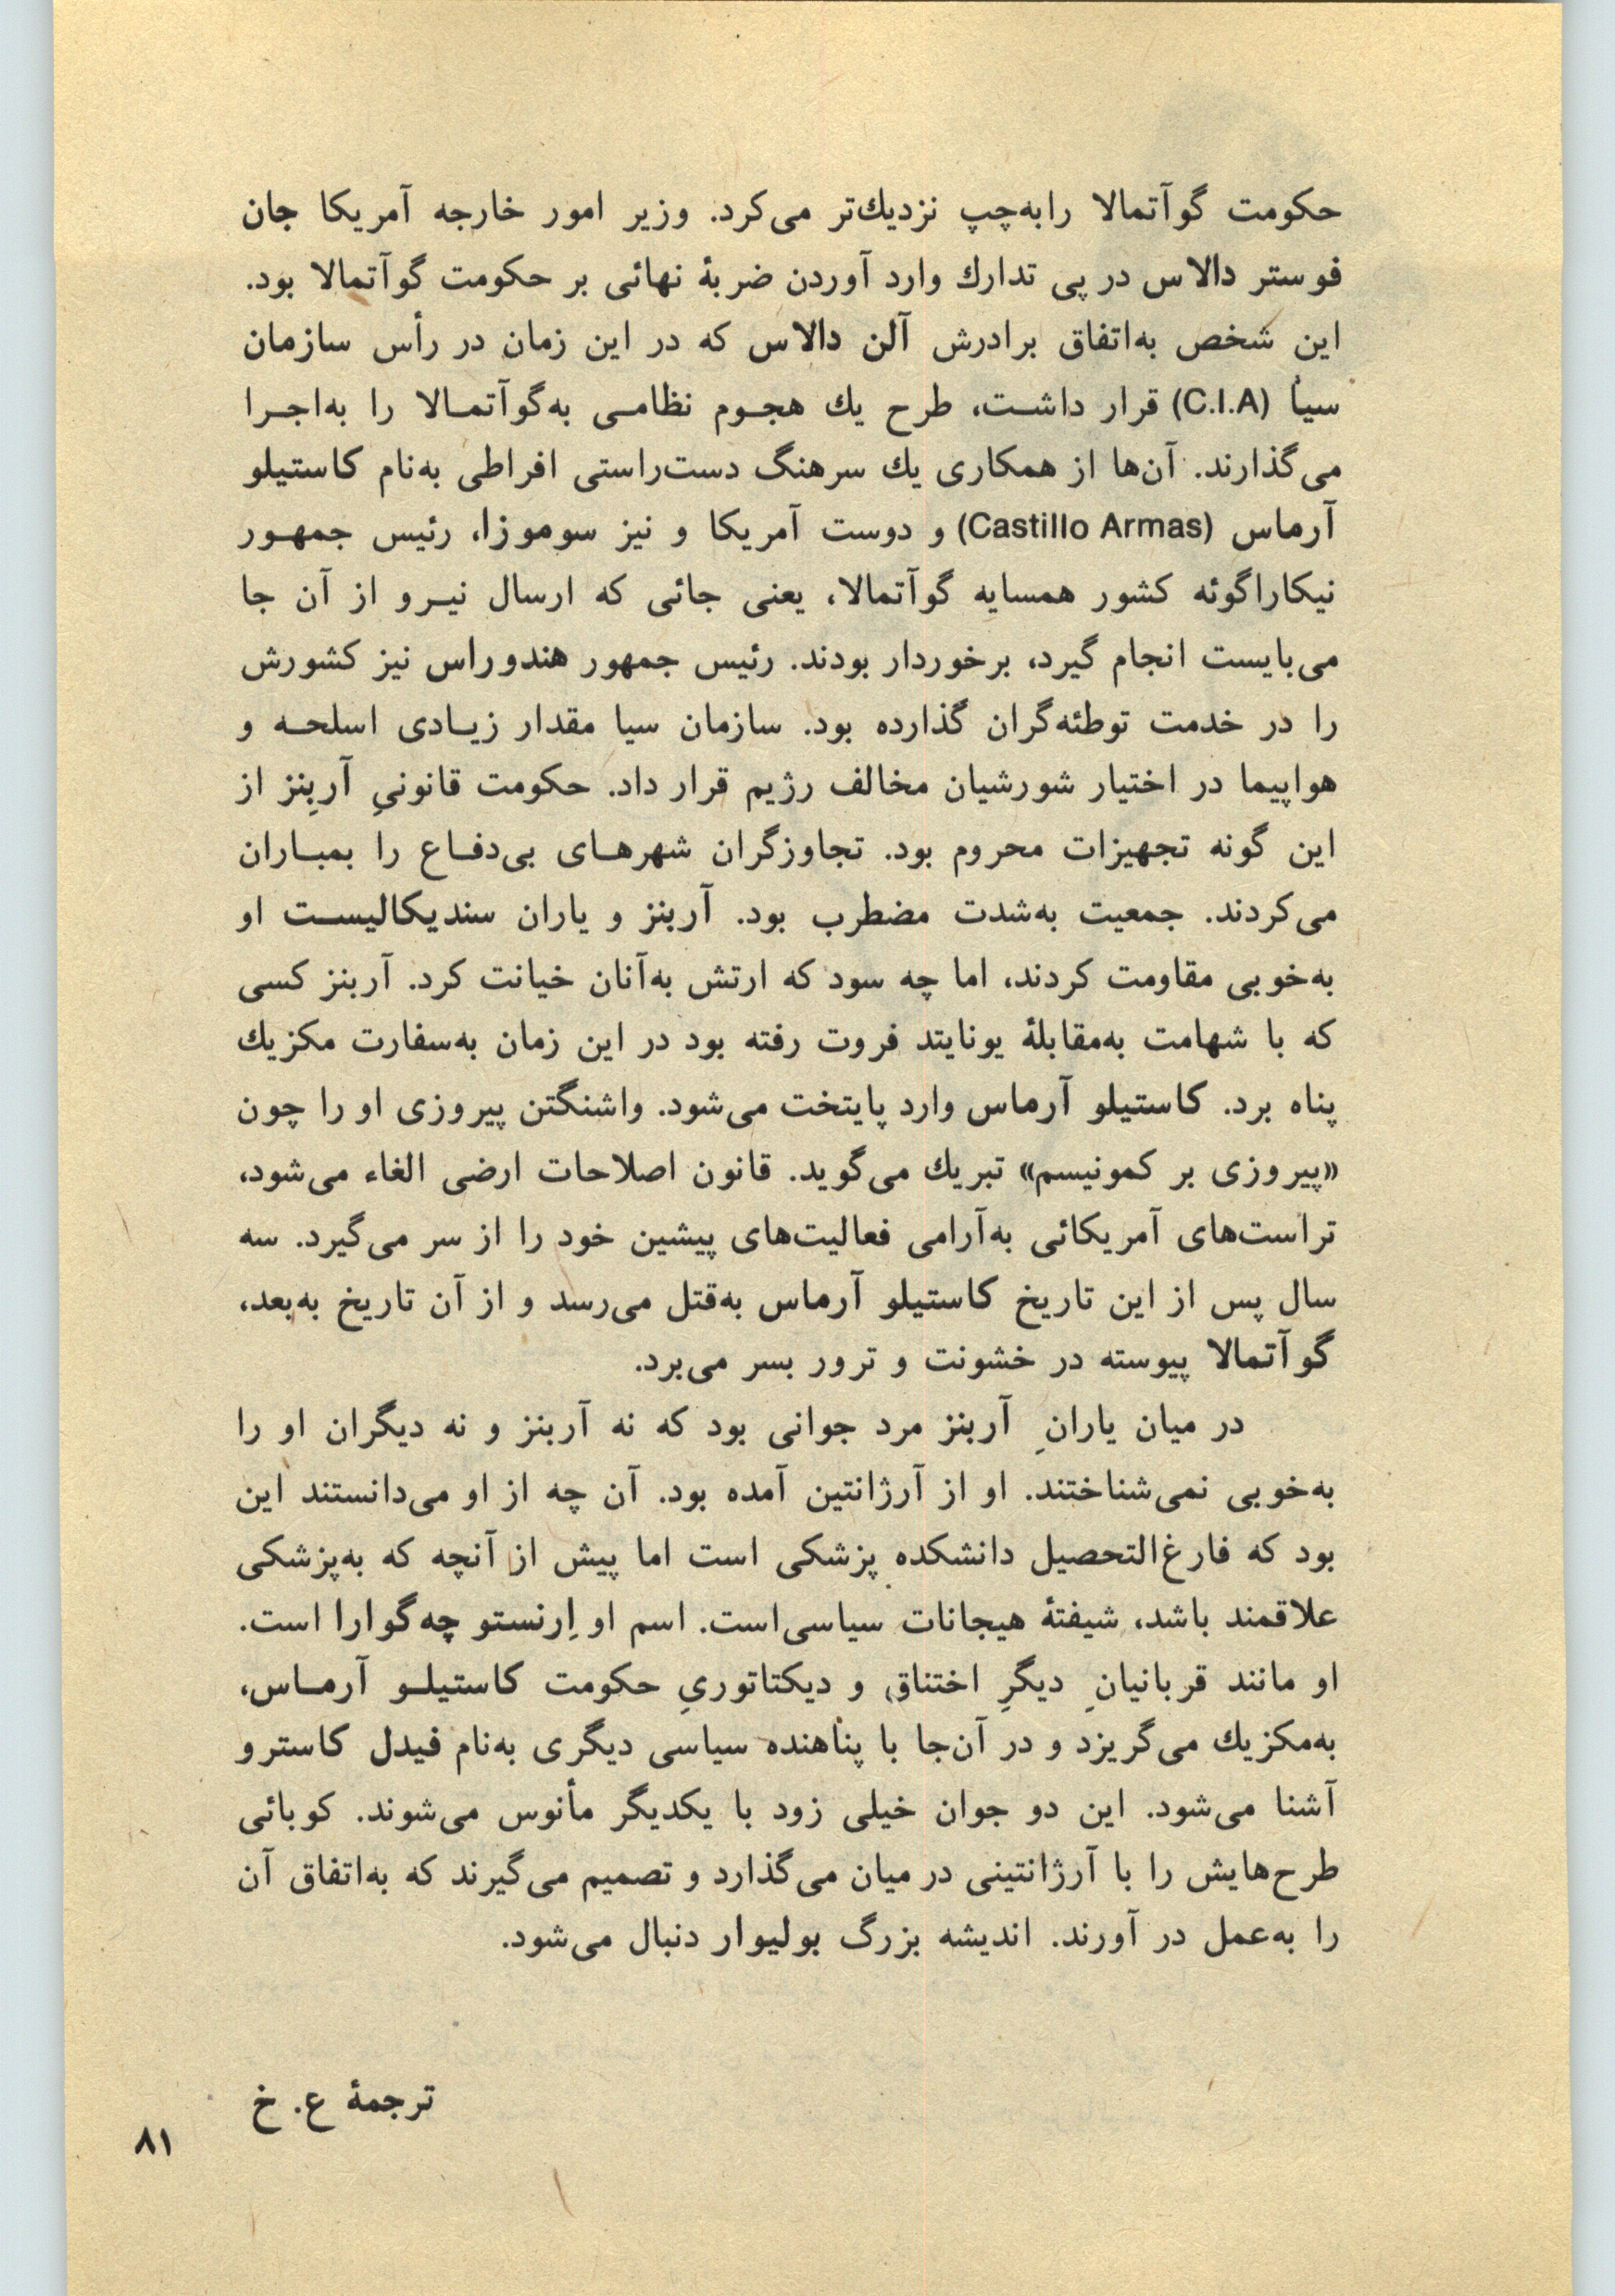 حکومت گوآتمالا رابه‌چپ نزدیك‌تر می‌کرد. وزیر امور خارجه آمریکا جان
فوستر دالاس در پی تدارك وارد آوردن ضربهٔ نهائی بر حکومت گوآتمالا بود.
این شخص به‌اتفاق برادرش آلن دالاس که در این زمان در رأس سازمان
سیا (C.I.A) قرار داشت، طرح یك هجوم نظامی به‌گوآتمالا را به‌اجرا
می‌گذارند. آن‌ها از همکاری یك سرهنگ دست‌راستی افراطی به‌نام کاستیلو
آرماس (Castillo Armas) و دوست آمریکا و نیز سوموزا، رئیس جمهور
نیکاراگوئه کشور همسایه گوآتمالا، یعنی جائی که ارسال نیرو از آن جا
می‌بایست انجام گیرد، برخوردار بودند. رئیس جمهور هندوراس نیز کشورش
را در خدمت توطئه‌گران گذارده بود. سازمان سیا مقدار زیادی اسلحه و
هواپیما در اختیار شورشیان مخالف رژیم قرار داد. حکومت قانونیِ آربِنز از
این گونه تجهیزات محروم بود. تجاوزگران شهرهای بی‌دفاع را بمباران
می‌کردند. جمعیت به‌شدت مضطرب بود. آربنز و یاران سندیکالیست او
به‌خوبی مقاومت کردند، اما چه سود که ارتش به‌آنان خیانت کرد. آربنز کسی
که با شهامت به‌مقابلهٔ یونایتد فروت رفته بود در این زمان به‌سفارت مکزیك
پناه برد. کاستیلو آرماس وارد پایتخت می‌شود. واشنگتن پیروزی او را چون
«پیروزی بر کمونیسم» تبریك می‌گوید. قانون اصلاحات ارضی الغاء می‌شود،
تراست‌های آمریکائی به‌آرامی فعالیت‌های پیشین خود را از سر می‌گیرد. سه
سال پس از این تاریخ کاستیلو آرماس به‌قتل می‌رسد و از آن تاریخ به‌بعد،
گوآتمالا پیوسته در خشونت و ترور بسر می‌برد.
در میان یارانِ آربنز مرد جوانی بود که نه آربنز و نه دیگران او را
به‌خوبی نمی‌شناختند. او از آرژانتین آمده بود. آن چه از او می‌دانستند این
بود که فارغ‌التحصیل دانشکده پزشکی است اما پیش از آنچه که به‌پزشکی
علاقمند باشد، شیفتهٔ هیجانات سیاسی‌است. اسم او اِرنستو چه‌گوارا است.
او مانند قربانیانِ دیگرِ اختناق و دیکتاتوریِ حکومت کاستیلو آرماس،
به‌مکزیك می‌گریزد و در آن‌جا با پناهنده سیاسی دیگری به‌نام فیدل کاسترو
آشنا می‌شود. این دو جوان خیلی زود با یکدیگر مأنوس می‌شوند. کوبائی
طرح‌هایش را با آرژانتینی در میان می‌گذارد و تصمیم می‌گیرند که به‌اتفاق آن
را به‌عمل در آورند. اندیشه بزرگ بولیوار دنبال می‌شود.
ترجمهٔ ع. خ
۸۱